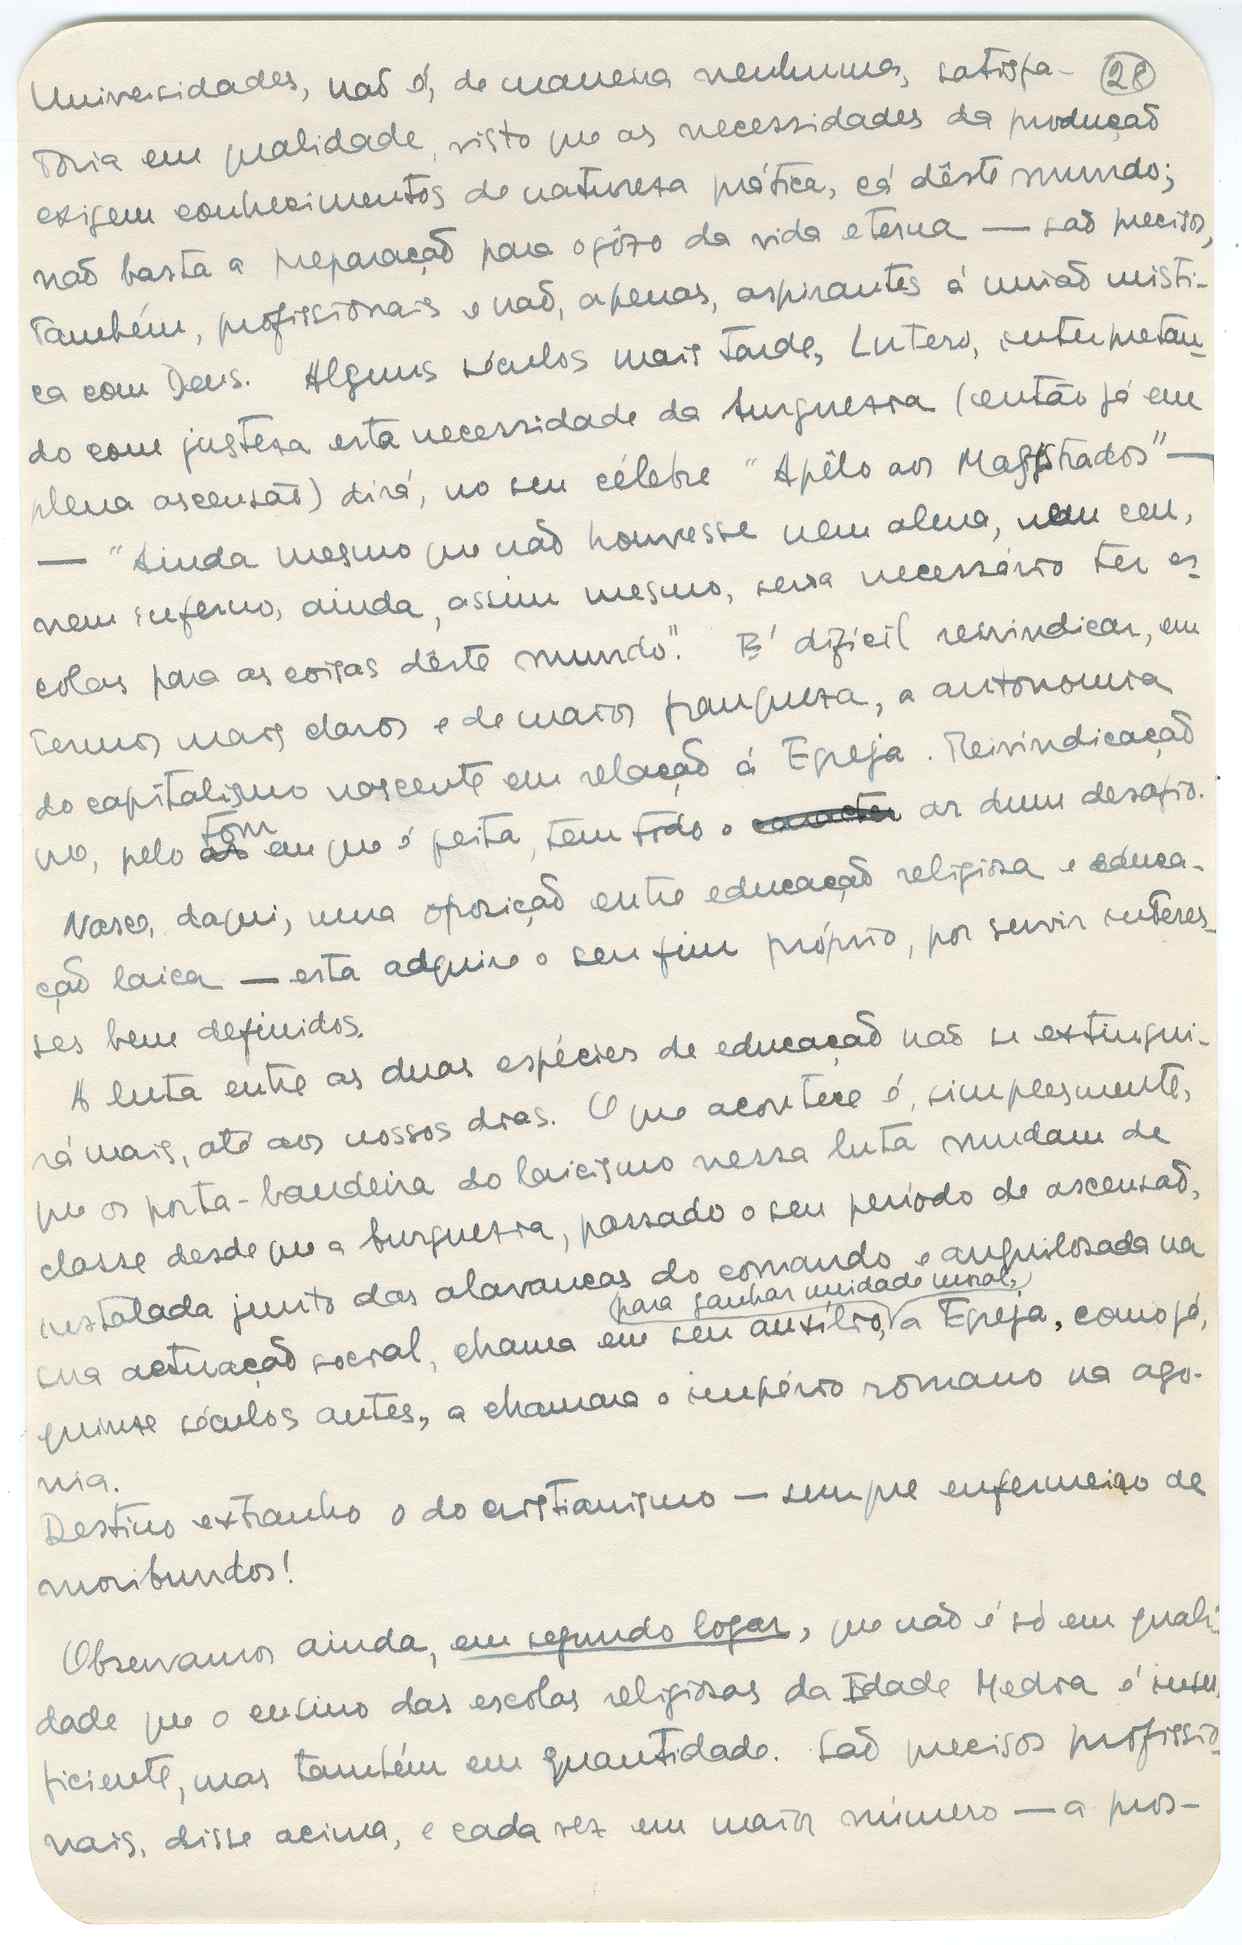 28
Universidades, não é, de maneira nenhuma, satisfa-
tória em qualidade, visto que as necessidades da produção
exigem conhecimentos de natureza prática, cá dêste mundo;
não basta a preparação para o gôzo da vida eterna — são precisos,
também, profissionais e não, apenas, aspirantes à união místi-
ca com Deus. Alguns séculos mais tarde, Lutero, interpretan-
do com justeza esta necessidade da burguesia (então já em
plena ascensão) dirá, no seu célebre "Apêlo aos Magistrados" —
— "Ainda mesmo que não houvesse nem alma, nem ceu,
nem inferno, ainda, assim mesmo, seria necessário ter es-
colas para as coisas dêste mundo". É difícil reivindicar, em
termos mais claros e de maior franqueza, a autonomia
do capitalismo nascente em relação à Egreja. Reivindicação
que, pelo tom em que é feita, tem todo o ar dum desafio.
Nasce, daqui, uma oposição entre educação religiosa e educa-
ção laica — esta adquire o seu fim próprio, por servir interes-
ses bem definidos.
A luta entre as duas espécies de educação não se extingui-
rá mais, até aos nossos dias. O que acontece é, simplesmente,
que os porta-bandeira do laicismo nessa luta mudam de
classe desde que a burguesia, passado o seu período de ascensão,
instalada junto das alavancas do comando e anquilosada na
sua actuação social, chama em seu auxílio, para ganhar unidade moral, a Egreja, como já,
quinze séculos antes, a chamara o império romano na ago-
nia.
Destino extranho o do cristianismo — sempre enfermeiro de
moribundos!
Observamos ainda, em segundo logar, que não é só em quali-
dade que o ensino das escolas religiosas da Idade Media é insu-
ficiente, mas também em quantidade. São precisos profissio-
nais, disse acima, e cada vez em maior número — a pros-